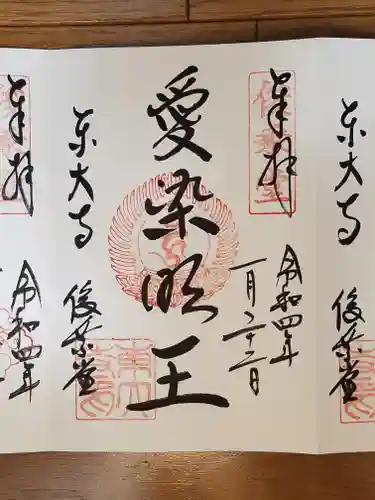 東大寺
俊乗堂
奉拝
令和四年
一月二十二日
愛染明王
東大寺
俊乗堂
奉拝
令和四年